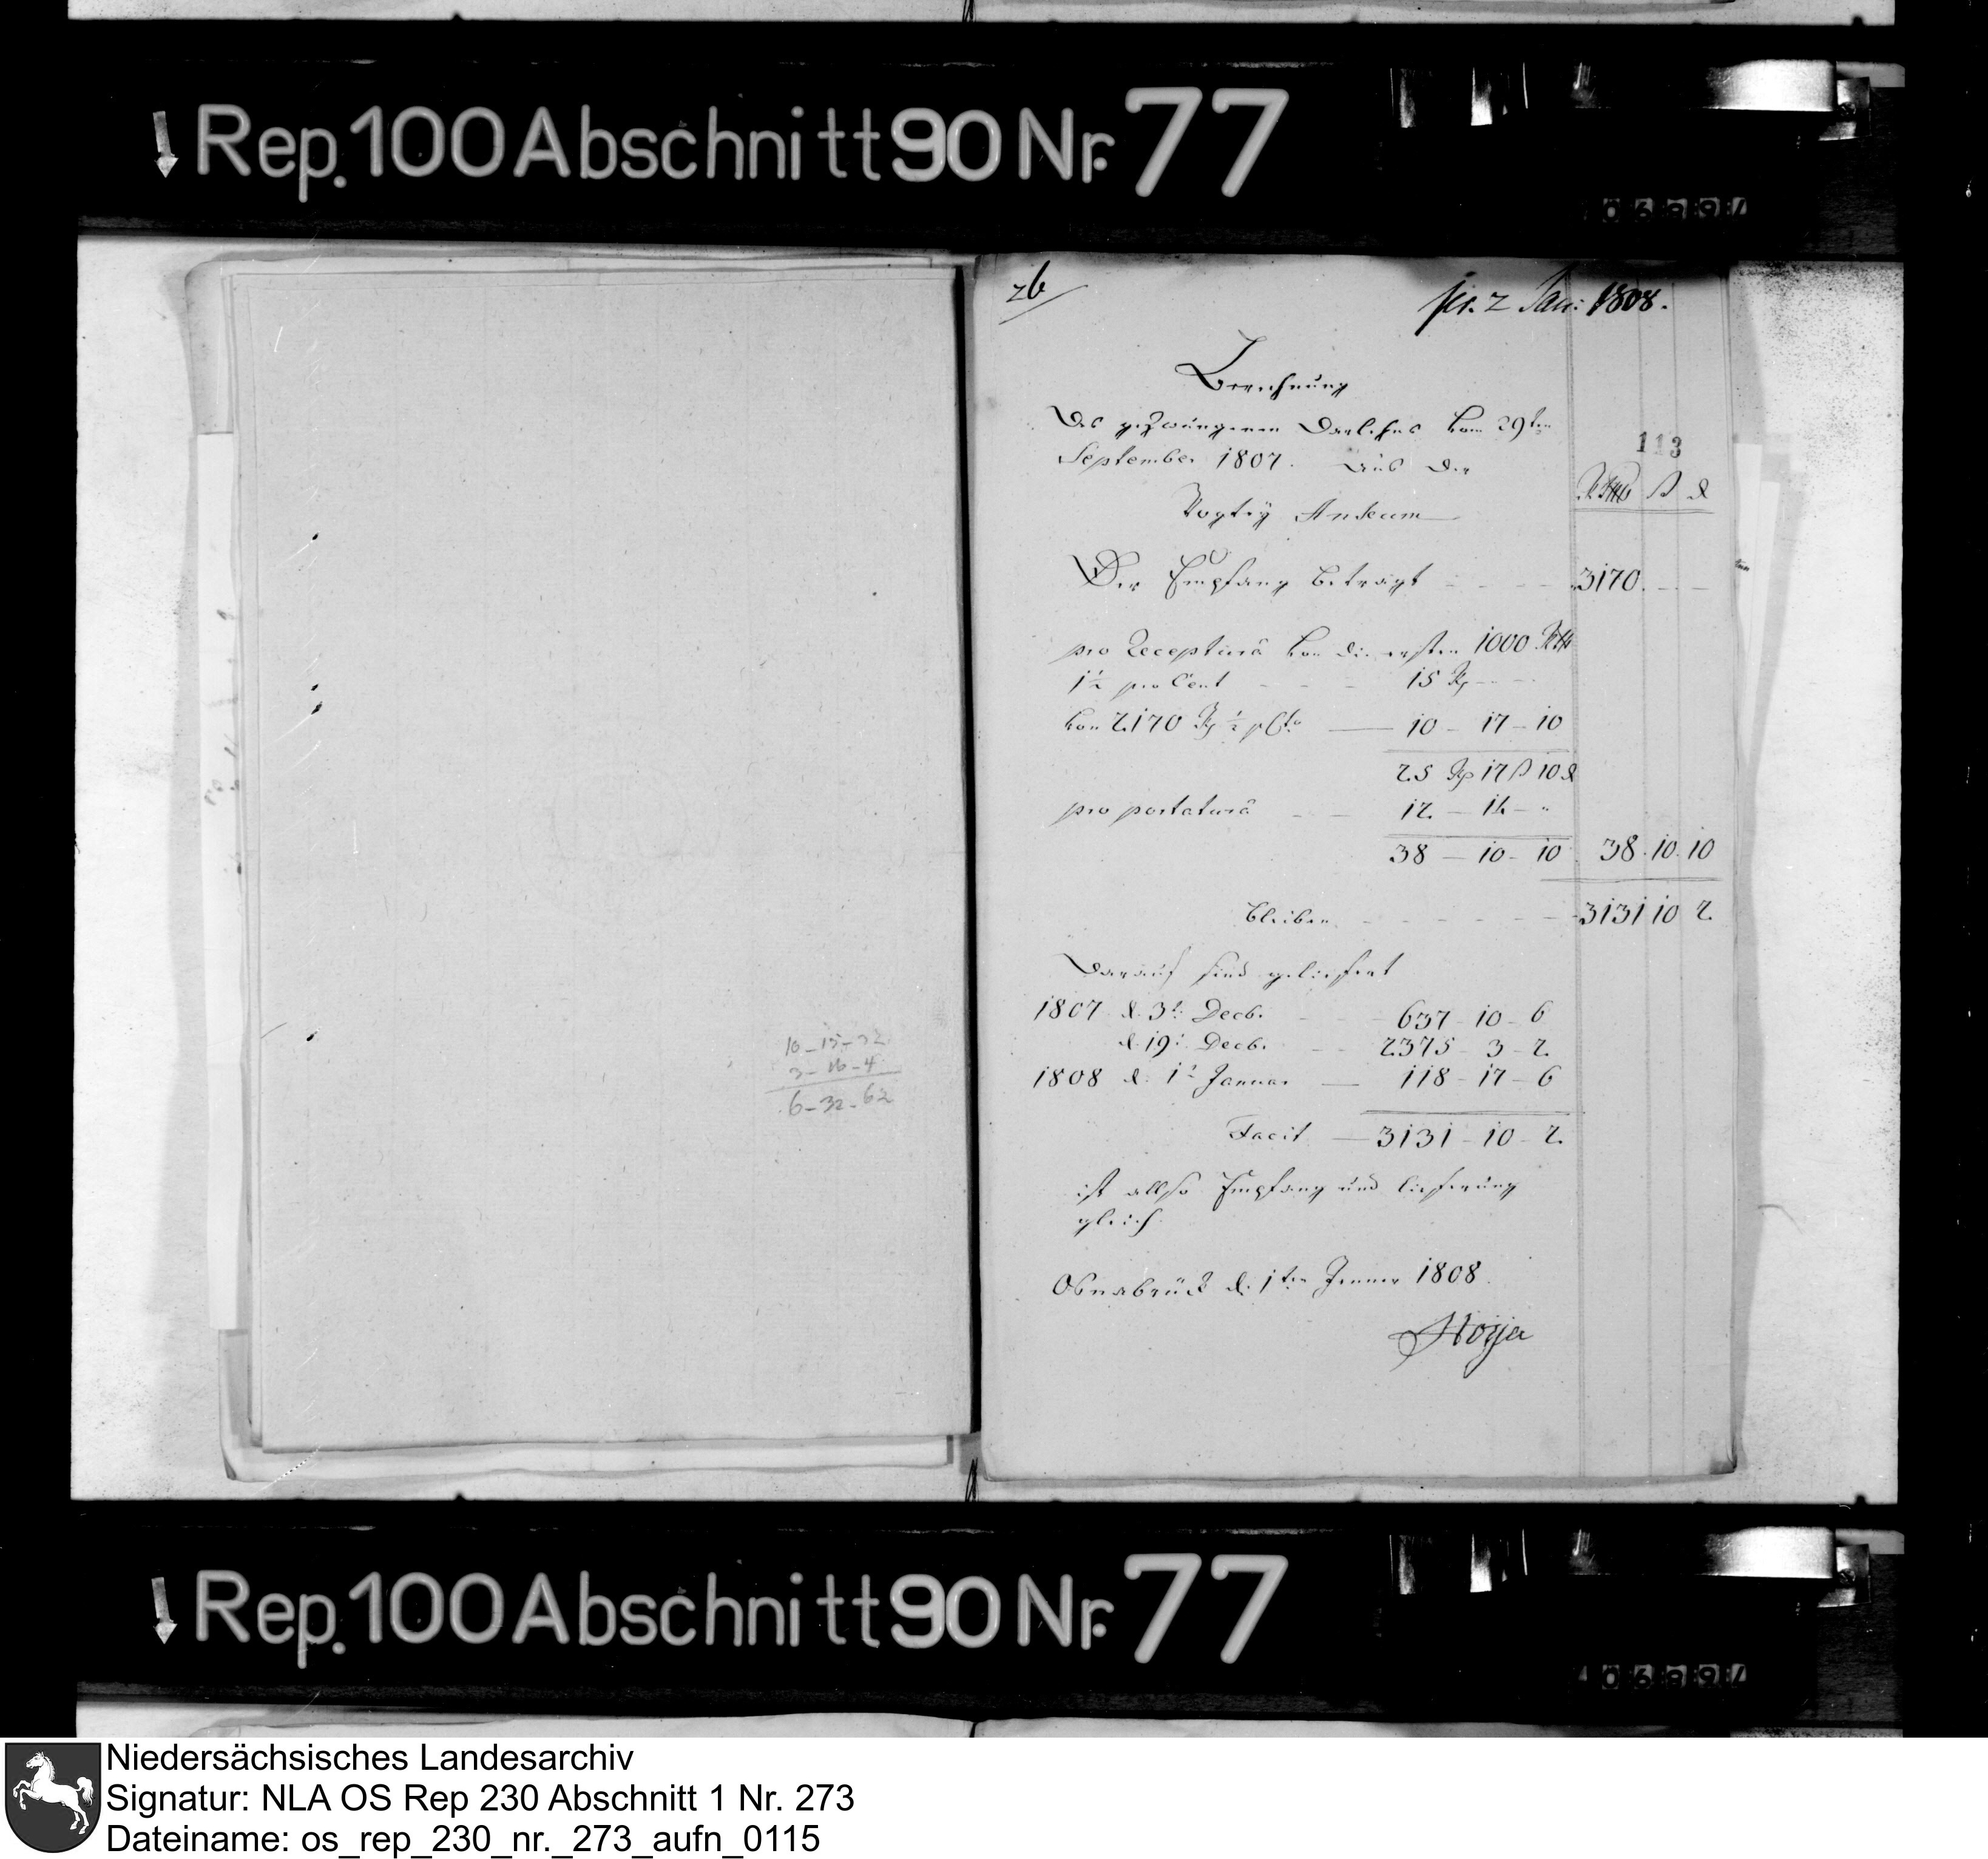 Rep. 100 Abschnitt 90 Nr. 77
10-15-32
3-16-4
6-32-62
26
pr. 2 Jan: 1808.
Berechnung
Des gezwungenen Darlehns vom 29ten
September 1807. aus der
113
Vogtey Ankum
Rthlr ß d
Der Empfang beträgt - - - - 3170. - -
pro Recepturâ von die ersten 1000 Rthlr
1½ pro Cent - - - 15 Rt - -
von 2170 Rt ½ pCto — 10 - 17 - 10
25 Rt 17 ß 10 d
pro portaturâ - - 12 - 14 - "
38 - 10 - 10 38. 10. 10
bleiben - - - - - - - 3131 10 2
Darauf sind geliefert
1807 d. 3t: Decb. - - - 637 - 10 - 6
d. 19t: Decb. - - 2375 - 3 - 2
1808 d. 1t Januar — 118 - 17 - 6
Facit — 3131 - 10 - 2
ist allso Empfang und Lieferung
gleich.
Osnabrück d. 1ten Jenner 1808.
Rep. 100 Abschnitt 90 Nr. 77
Niedersächsisches Landesarchiv
Signatur: NLA OS Rep 230 Abschnitt 1 Nr. 273
Dateiname: os_rep_230_nr._273_aufn_0115